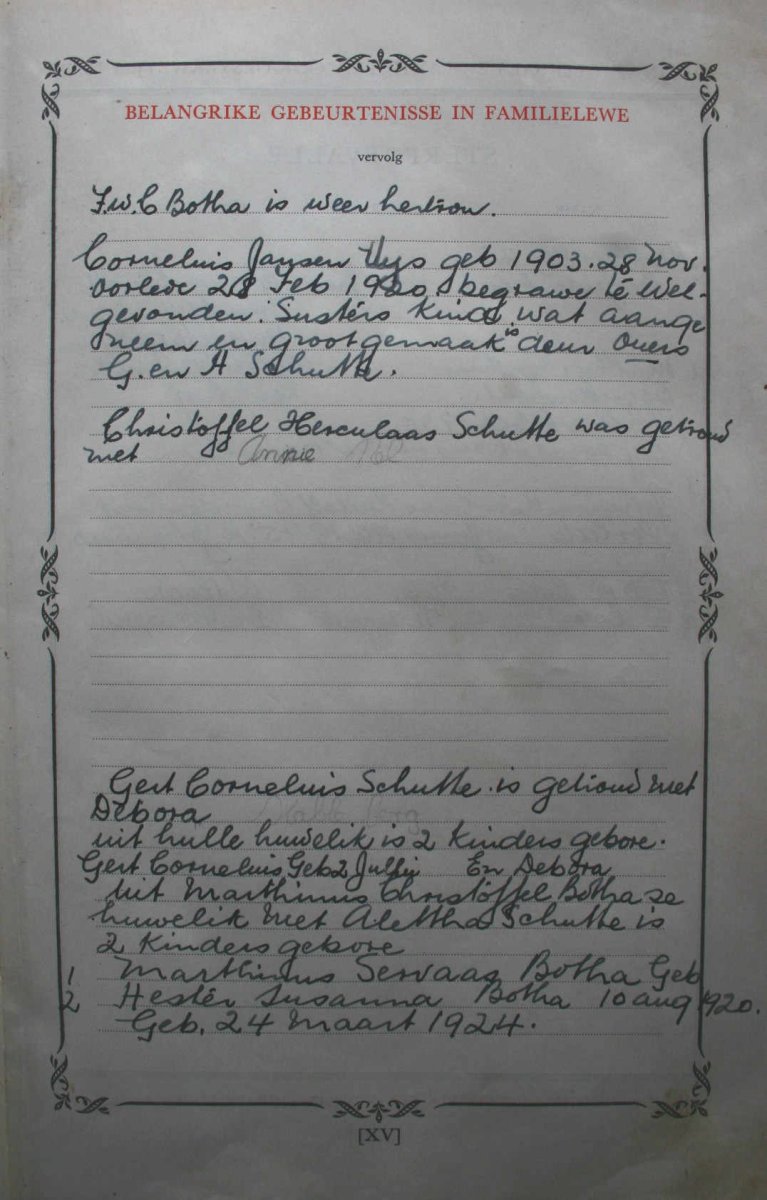 BELANGRIKE GEBEURTENISSE IN FAMILIELEWE
vervolg
Botha is weer hertrou.
Cornelius Jansen Uys geb 1903. 28 Nov.
oorlede 28 Feb 1920. begrawe te Wel-
gevonden. Susters Kind wat aange
neem en grootgemaak is deur Ouers
G. en A Schutte.
Christoffel Herculaas Schutte was getroud
met Annie
Gert Cornelius Schutte is getroud met
Debora
uit hulle huwelik is 2 Kinders gebore.
Gert Cornelius Geb 2 En Debora
Uit Marthinus Christoffel Botha se
huwelik met Alettha Schutte is
2 Kinders gebore
1 Marthinus Servaas Botha Geb
10 aug 1920.
2 Hester Susanna Botha
Geb. 24 Maart 1924.
[XV]